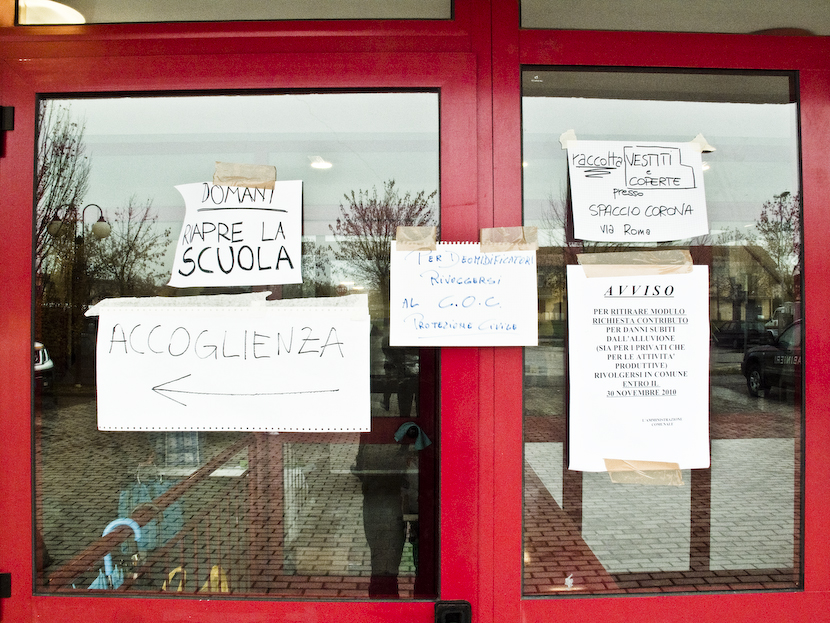 DOMANI
RIAPRE LA
SCUOLA
ACCOGLIENZA
PER DEUMIDIFICATORI
RIVOLGERSI
AL C.O.C.
PROTEZIONE CIVILE
raccolta VESTITI
e
COPERTE
presso
SPACCIO CORONA
VIA Roma
AVVISO
PER RITIRARE MODULO
RICHIESTA CONTRIBUTO
PER DANNI SUBITI
DALL'ALLUVIONE
(SIA PER I PRIVATI CHE
PER LE ATTIVITA'
PRODUTTIVE)
RIVOLGERSI IN COMUNE
ENTRO IL
30 NOVEMBRE 2010
L'AMMINISTRAZIONE
COMUNALE